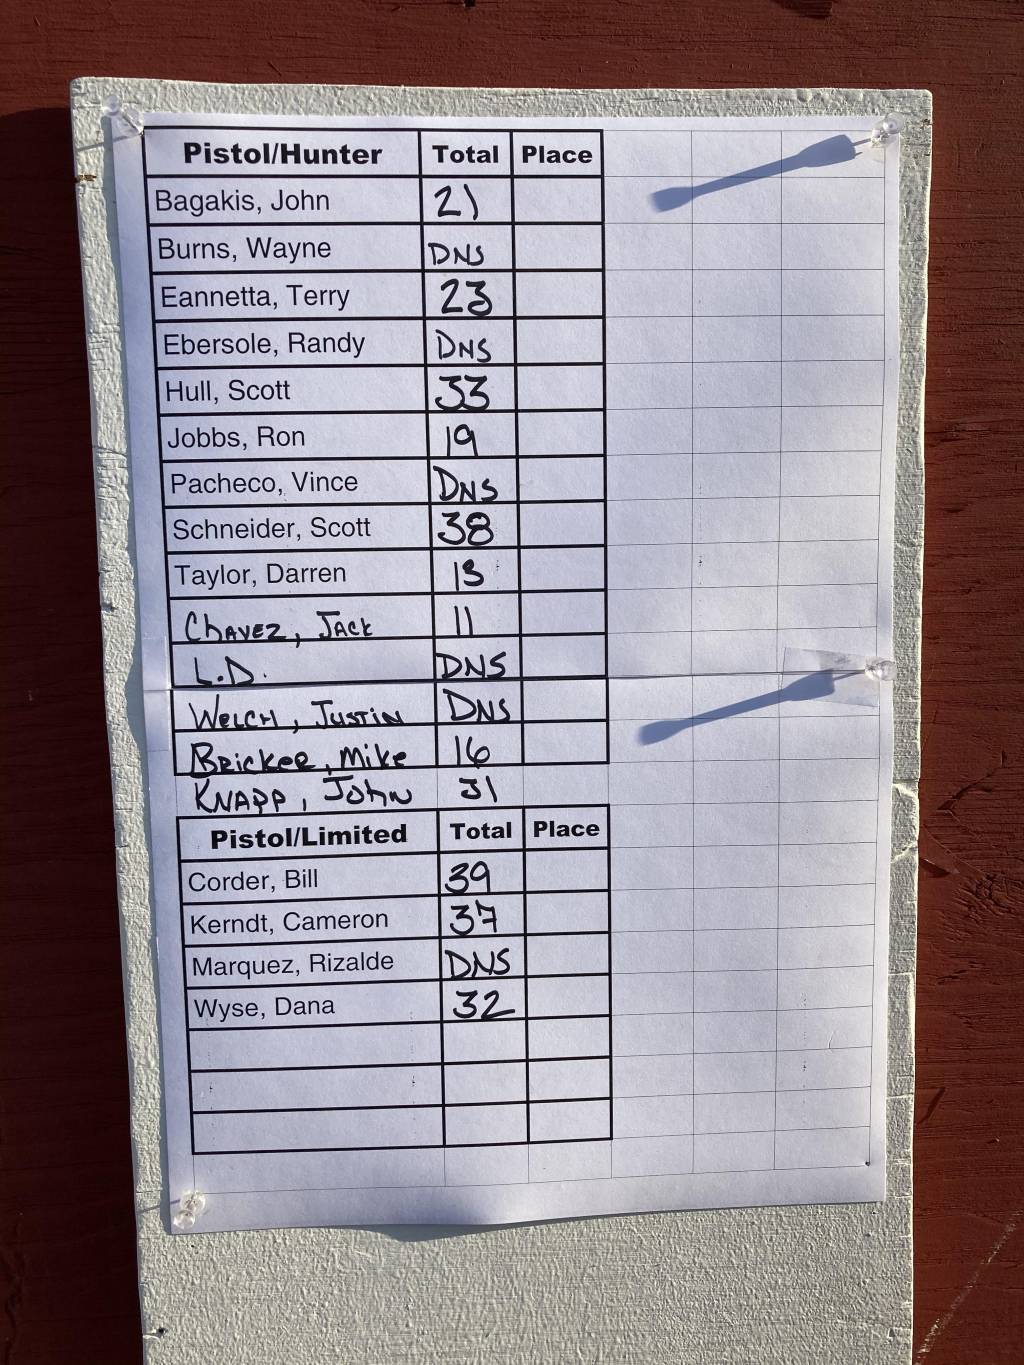 Pistol/Hunter Total Place
Bagakis, John 21
Burns, Wayne DNS
Eannetta, Terry 23
Ebersole, Randy DNS
Hull, Scott 33
Jobbs, Ron 19
Pacheco, Vince DNS
Schneider, Scott 38
Taylor, Darren 13
Chavez, Jack 11
L.D. DNS
Welch, Justin DNS
Bricker, Mike 16
Knapp, John 31
Pistol/Limited Total Place
Corder, Bill 39
Kerndt, Cameron 37
Marquez, Rizalde DNS
Wyse, Dana 32